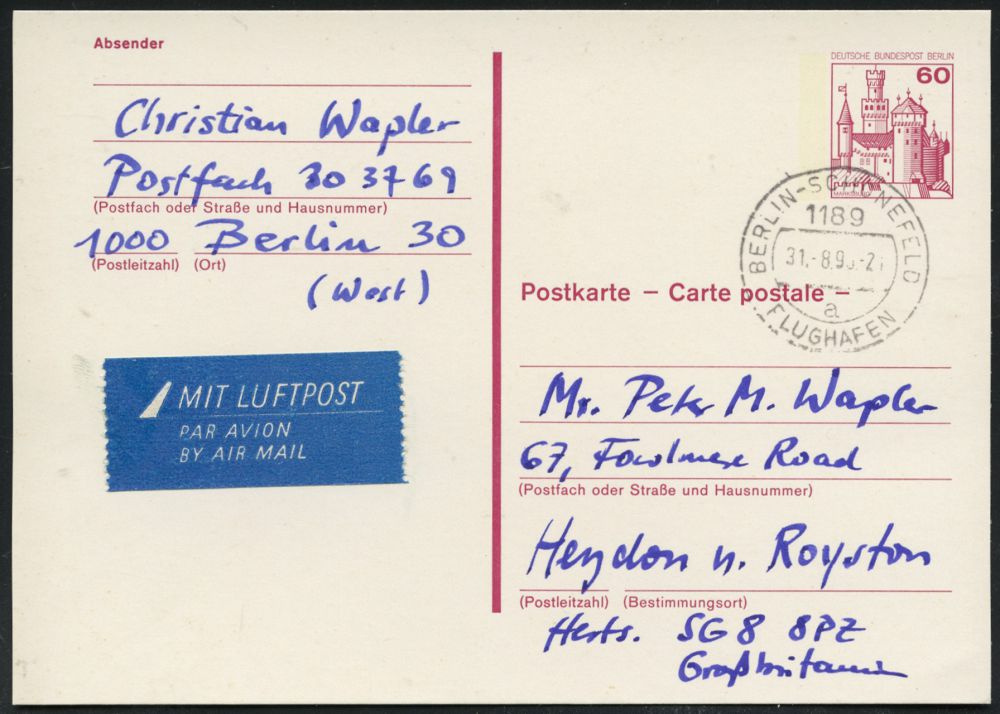 Absender
Christian Wapler
Postfach 30 37 69
(Postfach oder Straße und Hausnummer)
1000 Berlin 30
(Postleitzahl) (Ort)
(West)
MIT LUFTPOST
PAR AVION
BY AIR MAIL
DEUTSCHE BUNDESPOST BERLIN
60
MARKSBURG
BERLIN-SCHÖNEFELD
1189
31.-8.90.-21
a
FLUGHAFEN
Postkarte – Carte postale –
Mr. Peter M. Wapler
67, Fowlmere Road
(Postfach oder Straße und Hausnummer)
Heydon n. Royston
(Postleitzahl) (Bestimmungsort)
Herts. SG8 8PZ
Großbritannien